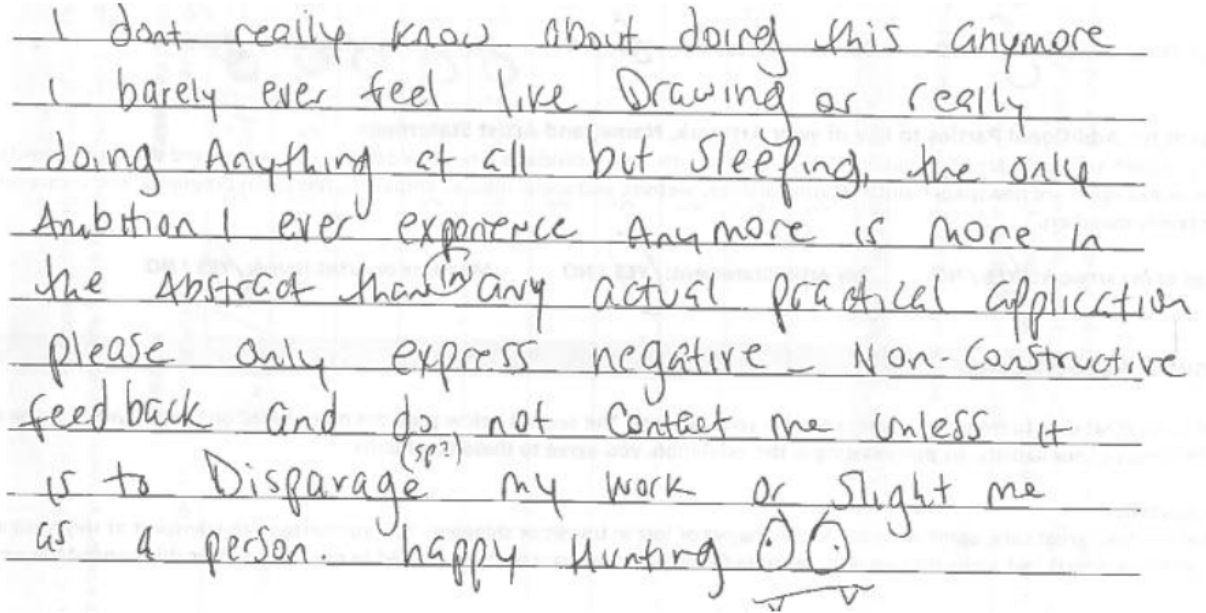 I dont really know about doing this anymore
I barely ever feel like Drawing or really
doing Anything at all but sleeping, the only
Ambition I ever experience Anymore is more in
the Abstract than in any actual practical application
please only express negative Non-Constructive
feedback and do not contact me unless it
(sp?)
is to Disparage my work or slight me
as a person. happy Hunting